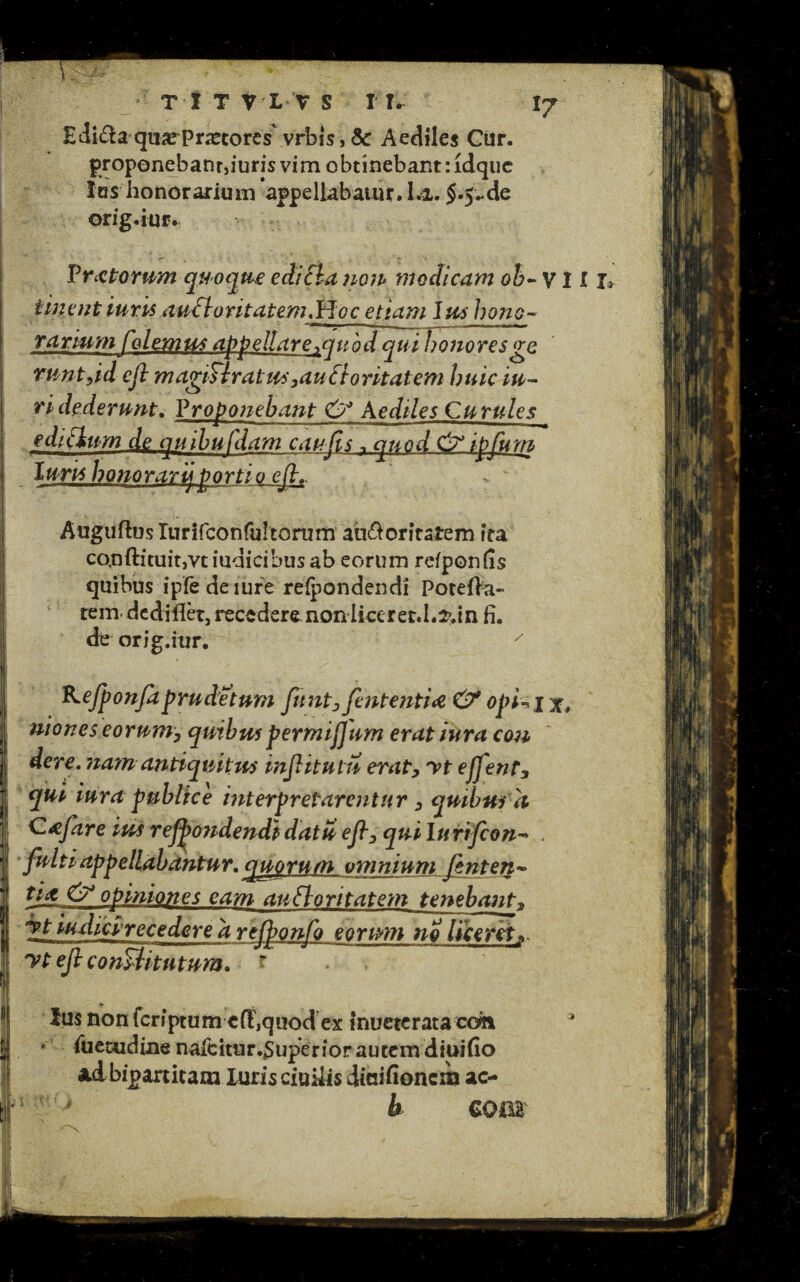 TITVLVS II. 17
Edicta quæ Prætores vrbis, & Aediles Cur.
proponebant, iuris vim obtinebant: idque
Ius honorarium appellabatur. l.2. §.5. de
orig.iur.
Prætorum quoque edicta non modicam ob- VIII.
tinent iuris auctoritatem. Hoc etiam Ius hono-
rarium solemus appellare, quòd qui honores ge
runt, id est magistratus, auctoritatem huic iu-
ri dederunt. Proponebant & Aediles Curules
edictum de quibusdam causis, quod & ipsum
Iuris honorarij portio est.
Augustus Iurisconsultorum auctoritatem ita
constituit, vt iudicibus ab eorum responsis
quibus ipse de iure respondendi Potesta-
tem dedisset, recedere non liceret. l.2. in fi.
de orig.iur.
Responsa prudētum sunt, sententiæ & opi- IX.
niones eorum, quibus permissum erat iura con
dere. nam antiquitus institutū erat, vt essent,
qui iura publicè interpretarentur, quibus à
Cæsare ius respondendi datū est, qui Iuriscon-
sulti appellabantur. quorum omnium senten-
tiæ & opiniones eam auctoritatem tenebant,
vt iudici recedere à responso eorum nō liceret,
vt est constitutum.
Ius non scriptum est, quod ex inueterata con
suetudine nascitur. Superior autem diuisio
ad bipartitam Iuris ciuilis diuisionem ac-
b com